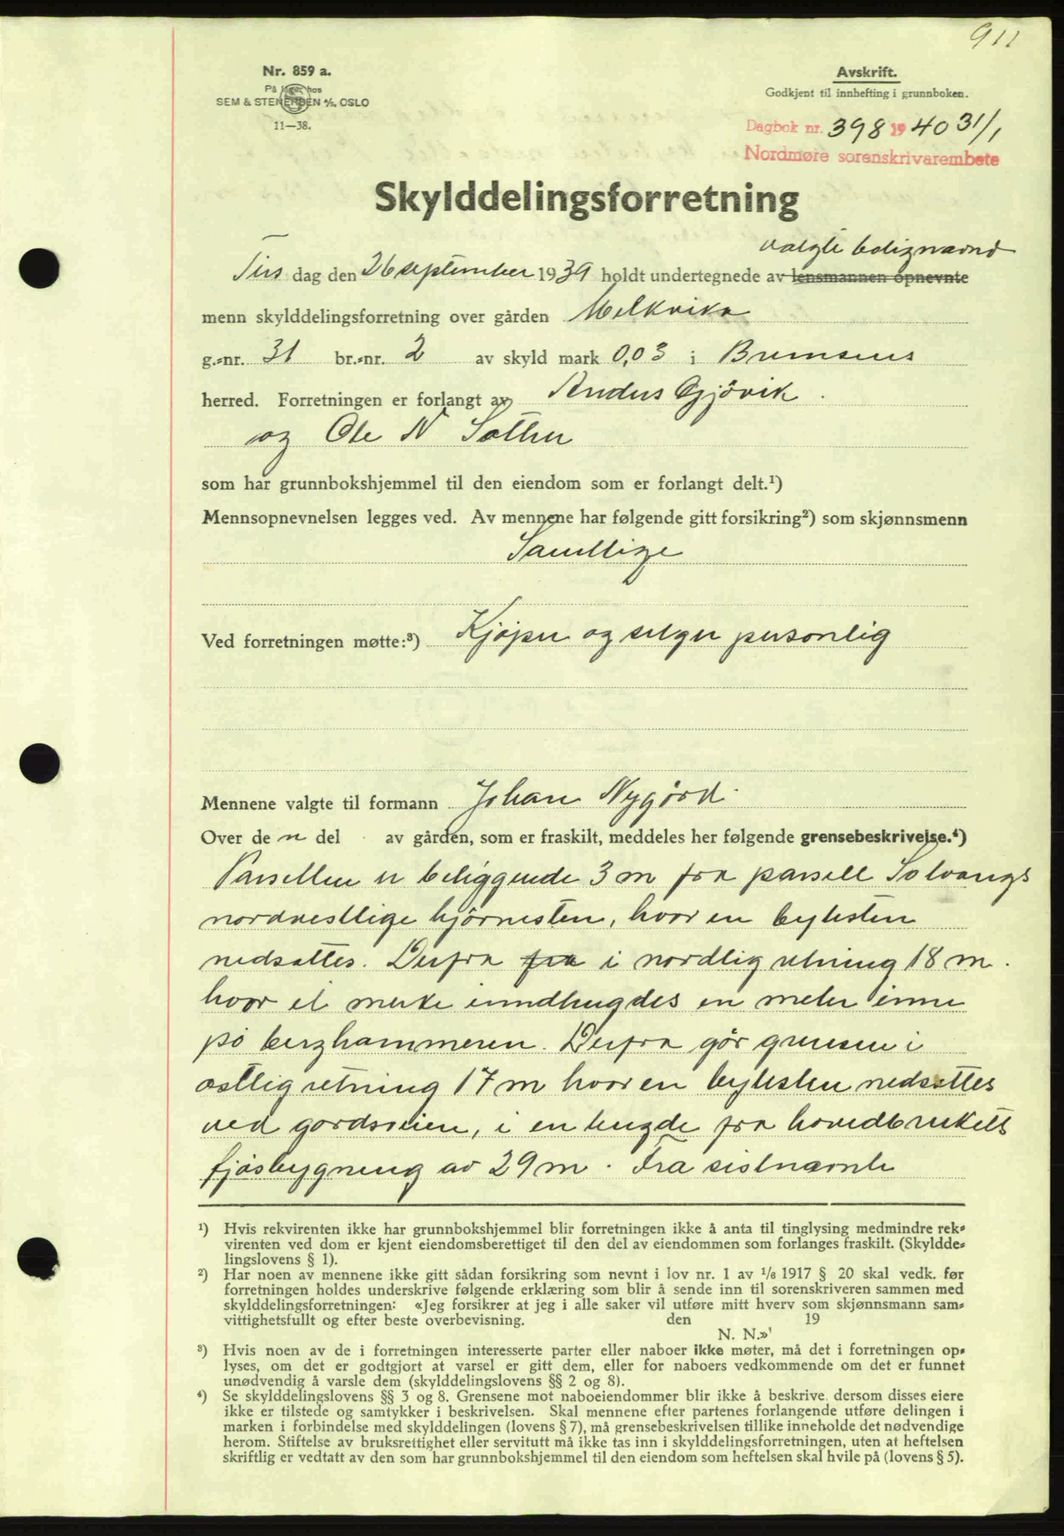 911
Nr. 859 a.
På lager hos
SEM & STENERSEN A/S, OSLO
11—38.
Avskrift.
Godkjent til innhefting i grunnboken.
Dagbok nr. 398 1940 31/1
Nordmøre sorenskrivarembete
Skylddelingsforretning
valgte bolignævnd
Tirs dag den 26 september 1939 holdt undertegnede av lensmannen opnevnte
menn skylddelingsforretning over gården Melkvika
g.-nr. 31 br.-nr. 2 av skyld mark 0,03 i Bremsnes
herred. Forretningen er forlangt av Anders Gjövik
og Ole N Sæther
som har grunnbokshjemmel til den eiendom som er forlangt delt.¹)
Mennsopnevnelsen legges ved. Av mennene har følgende gitt forsikring²) som skjønnsmenn
Samtlige
Ved forretningen møtte:³) Kjöper og selger personlig
Mennene valgte til formann Johan Nygård
Over de n del av gården, som er fraskilt, meddeles her følgende grensebeskrivelse.⁴)
Parsellen er beliggende 3 m fra parsell Solvangs
nordvestlige hjörnesten, hvor en bytesten
nedsattes. Derfra fra i nordlig retning 18 m.
hvor et merke inndhugdes en meter inne
på berghammeren. Derfra går grensen i
østlig retning 17 m hvor en bytesten nedsattes
ved gordsveien, i en lengde fra hovedbrukets
fjøsbygning av 29 m. Fra sistnævnte
¹) Hvis rekvirenten ikke har grunnbokshjemmel blir forretningen ikke å anta til tinglysing medmindre rek-
virenten ved dom er kjent eiendomsberettiget til den del av eiendommen som forlanges fraskilt. (Skyldde-
lingslovens § 1).
²) Har noen av mennene ikke gitt sådan forsikring som nevnt i lov nr. 1 av 1/6 1917 § 20 skal vedk. før
forretningen holdes underskrive følgende erklæring som blir å sende inn til sorenskriveren sammen med
skylddelingsforretningen: «Jeg forsikrer at jeg i alle saker vil utføre mitt hverv som skjønnsmann sam-
vittighetsfullt og efter beste overbevisning. den 19
N. N.»
³) Hvis noen av de i forretningen interesserte parter eller naboer ikke møter, må det i forretningen op-
lyses, om det er godtgjort at varsel er gitt dem, eller for naboers vedkommende om det er funnet
unødvendig å varsle dem (skylddelingslovens §§ 2 og 8).
⁴) Se skylddelingslovens §§ 3 og 8. Grensene mot naboeiendommer blir ikke å beskrive dersom disses eiere
ikke er tilstede og samtykker i beskrivelsen. Skal mennene efter partenes forlangende utføre delingen i
marken i forbindelse med skylddelingen (lovens § 7), må grensebeskrivelsen tillike inneholde det nødvendige
herom. Stiftelse av bruksrettighet eller servitutt må ikke tas inn i skylddelingsforretningen, uten at heftelsen
skriftlig er vedtatt av den som har grunnbokshjemmel til den eiendom som heftelsen skal hvile på (lovens § 5).